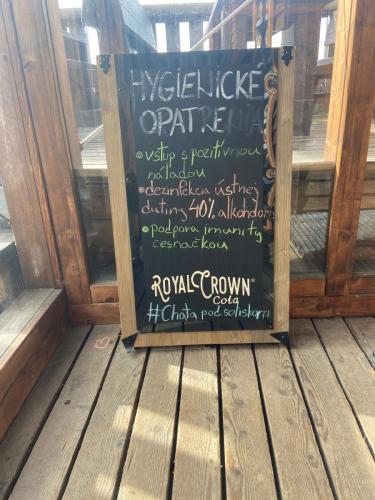 HYGIENICKÉ
OPATRENIA
•vstup s pozitívnou
náladou
•dezinfekcia ústnej
dutiny 40% alkoholom
•podpora imunity
cesnačkou
ROYAL CROWN
Cola
#Chata pod soliskom